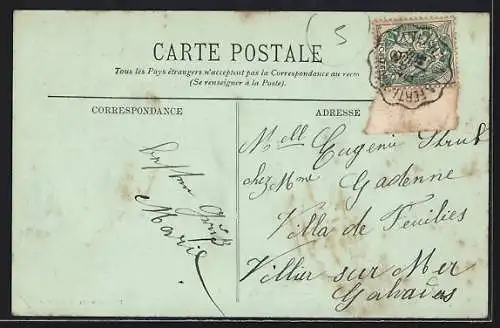 5
CARTE POSTALE
Tous les Pays étrangers n'acceptent pas la Correspondance au recto
(Se renseigner à la Poste).
CORRESPONDANCE
ADRESSE
Marie
Mell Eugenie
chez Mme Gadenne
Villa de Feuilies
Villier sur Mer
Galvados